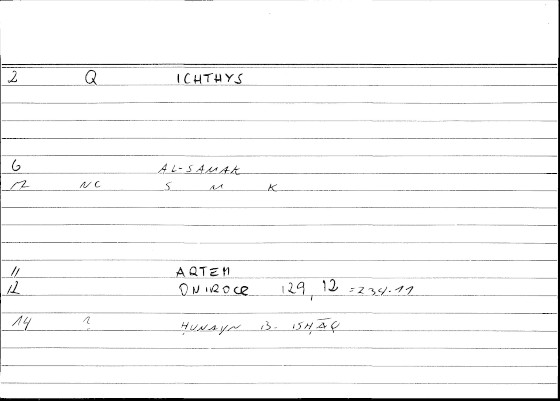 2 Q ICHTHYS
6 AL-SAMAK
12 NC S M K
11 ARTEM
12 ONIROCR 129, 12 = 234.11
14 ? ḤUNAYN B. ISḤĀQ